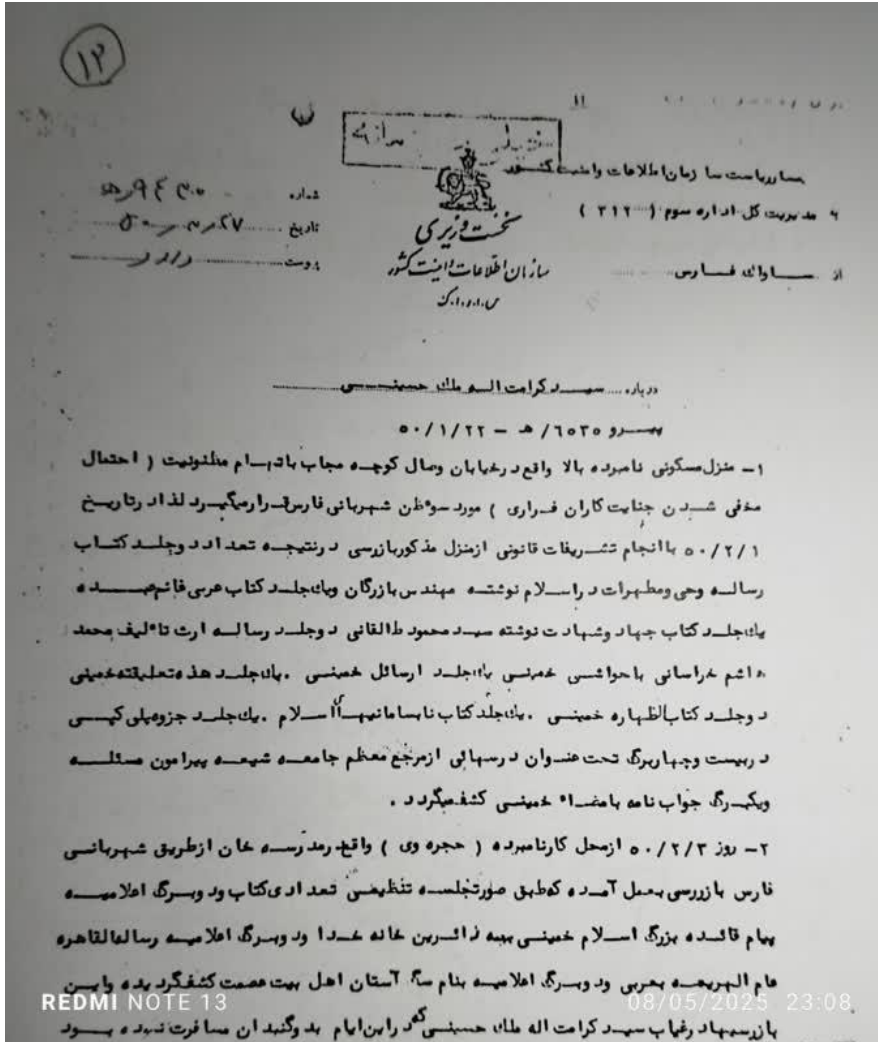 ۱۳
ریاست سازمان اطلاعات و امنیت کشور
مدیریت کل اداره سوم ( ۳۱۲ )
از ساواک فارس
نخست وزیری
سازمان اطلاعات و امنیت کشور
س.ا.و.ا.ک
شماره
تاریخ
پیوست
درباره سید کرامت اله ملک حسینی
پیرو ۶۵۳۵ /ه‍ - ۵۰/۱/۲۲
۱- منزل مسکونی نامبرده بالا واقع در خیابان وصال کوچه مجاب باتهام مظنونیت ( احتمال
مخفی شدن جنایت کاران فراری ) مورد سوءظن شهربانی فارس قرار میگیرد لذا در تاریخ
۵۰/۲/۱ با انجام تشریفات قانونی از منزل مذکور بازرسی در نتیجه تعداد دوجلد کتاب
رساله وحی ومطهرات در اسلام نوشته مهندس بازرگان ویک جلد کتاب عربی
یک جلد کتاب جهاد وشهادت نوشته سید محمود طالقانی دوجلد رساله ارث تاٴلیف محمد
هاشم خراسانی باحواشی خمینی یک جلد ارسائل خمینی .یک جلد هذه تعلیقته خمینی
دوجلد کتاب الطهاره خمینی .یک جلد کتاب نابسامانیهای اسلام .یک جلد جزوه پلی کپی
در بیست وچهاربرگ تحت عنوان درسهائی از مرجع معظم جامعه شیعه پیرامون مسئله
ویکبرگ جواب نامه بامضاء خمینی کشف میگردد .
۲- روز ۵۰/۲/۳ از محل کار نامبرده ( حجره وی ) واقع در مدرسه خان از طریق شهربانی
فارس بازرسی بعمل آمده که طبق صورتجلسه تنظیمی تعدادی کتاب ودوبرگ اعلامیه
پیام قائده بزرگ اسلام خمینی ببه زائرین خانه خدا ودوبرگ اعلامیه رساله القاهره
بعربی ودوبرگ اعلامیه بنام سگ آستان اهل بیت عصمت کشف گردیده واین
بازرسیها در غیاب سید کرامت اله ملک حسینی که در این ایام بدوگنبدان مسافرت نموده بود
REDMI NOTE 13
08/05/2025 23:08